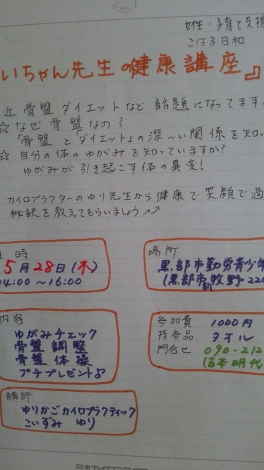 女性・子育て支援
こはる日和
いちゃん先生の健康講座』
近 骨盤ダイエットなど 話題になってます
☆なぜ骨盤なの?
「骨盤とダイエット」の深〜い関係を知っ
☆自分の体のゆがみを知っていますか?
ゆがみが引き起こす体の異変!
カイロプラクターのゆり先生から健康で笑顔で過
秘訣を教えてもらいましょう
時
5月28日(木)
14:00〜16:00
場所
黒部市勤労青少年
(黒部市牧野220
内容
ゆがみチェック
骨盤調整
骨盤体操
プチプレゼント
参加費 1000円
持参品 タオル
問合せ 090-212
(吉本明代
講師
ゆりかごカイロプラクティック
こいずみ ゆり